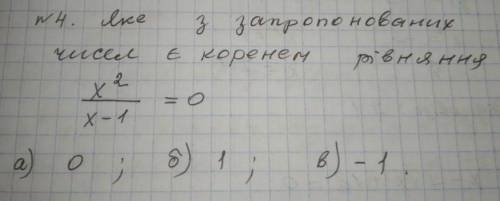 №4. Яке з запропонованих
чисел є коренем рівняння
x²/(x-1) = 0
а) 0 ; б) 1 ; в) -1.